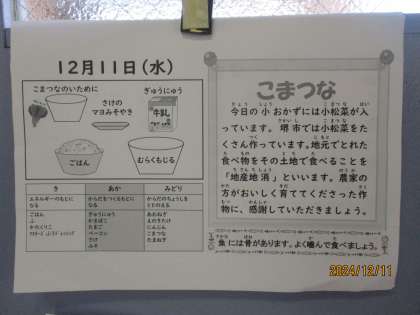 12月11日(水)
こまつなのいために
ぎゅうにゅう
さけの
マヨみそやき
牛乳
ごはん
むらくもじる
き
あか
みどり
エネルギーのもとに
なる
からだをつくるもとに
なる
からだのちょうしを
ととのえる
ごはん
ふ
かたくりこ
ぎゅうにゅう
かまぼこ
たまご
ベーコン
さけ
みそ
あおねぎ
えのきたけ
にんじん
こまつな
たまねぎ
こまつな
今日の小おかずには小松菜が入
っています。堺市では小松菜をた
くさん作っています。地元でとれた
食べ物をその土地で食べることを
「地産地消」といいます。農家の
方がおいしく育ててくださった作
物に、感謝していただきましょう。
魚には骨があります。よく噛んで食べましょう。
2024/12/11